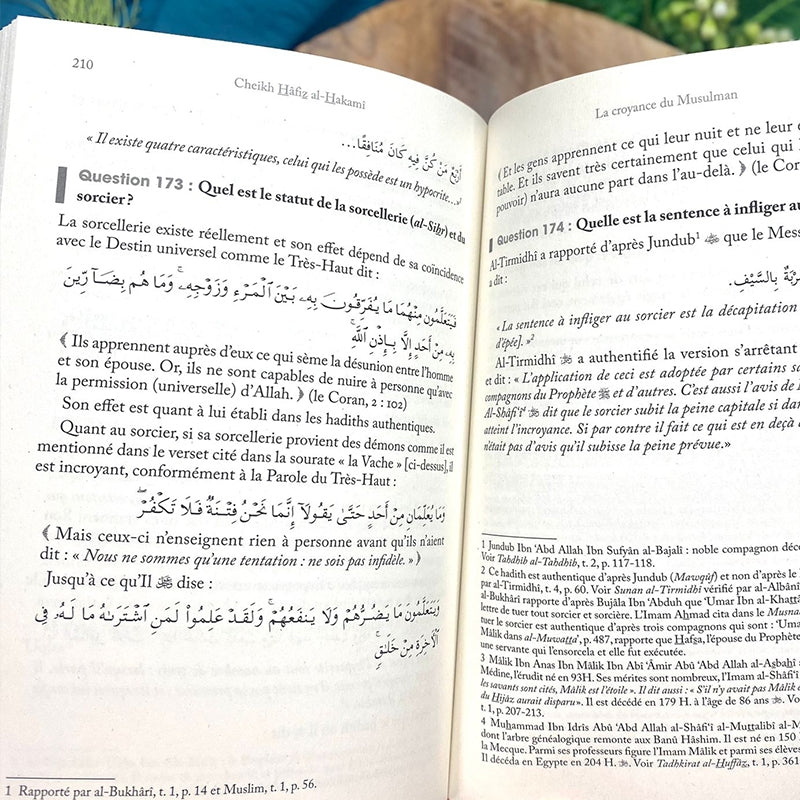 210
Cheikh Hâfiz al-Hakamî
أَرْبَعٌ مَنْ كُنَّ فِيهِ كَانَ مُنَافِقًا...
« Il existe quatre caractéristiques, celui qui les possède est un hypocrite...»¹
Question 173 : Quel est le statut de la sorcellerie (al-Sihr) et du
sorcier ?
La sorcellerie existe réellement et son effet dépend de sa coïncidence
avec le Destin universel comme le Très-Haut dit :
فَيَتَعَلَّمُونَ مِنْهُمَا مَا يُفَرِّقُونَ بِهِۦ بَيْنَ ٱلْمَرْءِ وَزَوْجِهِۦ ۚ وَمَا هُم بِضَآرِّينَ
بِهِۦ مِنْ أَحَدٍ إِلَّا بِإِذْنِ ٱللَّهِ ۚ
﴾ Ils apprennent auprès d'eux ce qui sème la désunion entre l'homme
et son épouse. Or, ils ne sont capables de nuire à personne qu'avec
la permission (universelle) d'Allah. ﴿ (le Coran, 2 : 102)
Son effet est quant à lui établi dans les hadiths authentiques.
Quant au sorcier, si sa sorcellerie provient des démons comme il est
mentionné dans le verset cité dans la sourate « la Vache » [ci-dessus], il
est incroyant, conformément à la Parole du Très-Haut :
وَمَا يُعَلِّمَانِ مِنْ أَحَدٍ حَتَّىٰ يَقُولَآ إِنَّمَا نَحْنُ فِتْنَةٌ فَلَا تَكْفُرْ ۖ
﴾ Mais ceux-ci n'enseignent rien à personne avant qu'ils n'aient
dit : « Nous ne sommes qu'une tentation : ne sois pas infidèle. » ﴿
Jusqu'à ce qu'Il ﷻ dise :
وَيَتَعَلَّمُونَ مَا يَضُرُّهُمْ وَلَا يَنفَعُهُمْ ۚ وَلَقَدْ عَلِمُوا۟ لَمَنِ ٱشْتَرَىٰهُ مَا لَهُۥ فِى
ٱلْـَٔاخِرَةِ مِنْ خَلَـٰقٍ ۚ
1 Rapporté par al-Bukhârî, t. 1, p. 14 et Muslim, t. 1, p. 56.
La croyance du Musulman
﴾ Et les gens apprennent ce qui leur nuit et ne leur
table. Et ils savent très certainement que celui qui
pouvoir) n'aura aucune part dans l'au-delà. ﴿ (le Cor
Question 174 : Quelle est la sentence à infliger au
Al-Tirmidhî a rapporté d'après Jundub¹ que le Mess
a dit :
بِالسَّيْفِ.
« La sentence à infliger au sorcier est la décapitation
d'épée]. »²
Al-Tirmidhî a authentifié la version s'arrêtant
et dit : « L'application de ceci est adoptée par certains sa
compagnons du Prophète ﷺ et d'autres. C'est aussi l'avis de
Al-Shâfi'î⁴ dit que le sorcier subit la peine capitale si dan
atteint l'incroyance. Si par contre il fait ce qui est en deçà
n'était pas d'avis qu'il subisse la peine prévue.»
1 Jundub Ibn 'Abd Allah Ibn Sufyân al-Bajalî : noble compagnon déc
Voir Tahdhîb al-Tahdhîb, t. 2, p. 117-118.
2 Ce hadith est authentique d'après Jundub (Mawqûf) et non d'après le
par al-Tirmidhî, t. 4, p. 60. Voir Sunan al-Tirmidhî vérifié par al-Albânî
al-Bukhârî rapporte d'après Bujâla Ibn 'Abduh que 'Umar Ibn al-Khatt
lettre de tuer tout sorcier et sorcière. L'Imam Ahmad cita dans le Musna
tuer le sorcier est authentique d'après trois compagnons qui sont : 'Uma
Mâlik dans al-Muwatta', p. 487, rapporte que Hafsa, l'épouse du Prophète
une servante qui l'ensorcela et elle fut exécutée.
3 Mâlik Ibn Anas Ibn Mâlik Ibn Abî 'Âmir Abû 'Abd Allah al-Asbahî
Médine, l'érudit né en 93H. Ses mérites sont nombreux, l'Imam al-Shâfi'î
les savants sont cités, Mâlik est l'étoile ». Il dit aussi : « S'il n'y avait pas Mâlik
du Hijâz aurait disparu». Il est décédé en 179 H. à l'âge de 86 ans
t. 1, p. 207-213.
4 Muhammad Ibn Idrîs Abû 'Abd Allah al-Shâfi'î al-Muttalibî al-M
dont l'arbre généalogique remonte aux Banû Hâshim. Il est né en 150
la Mecque. Parmi ses professeurs figure l'Imam Mâlik et parmi ses élèves
Il décéda en Egypte en 204 H. Voir Tadhkirat al-Huffâz, t. 1, p. 361